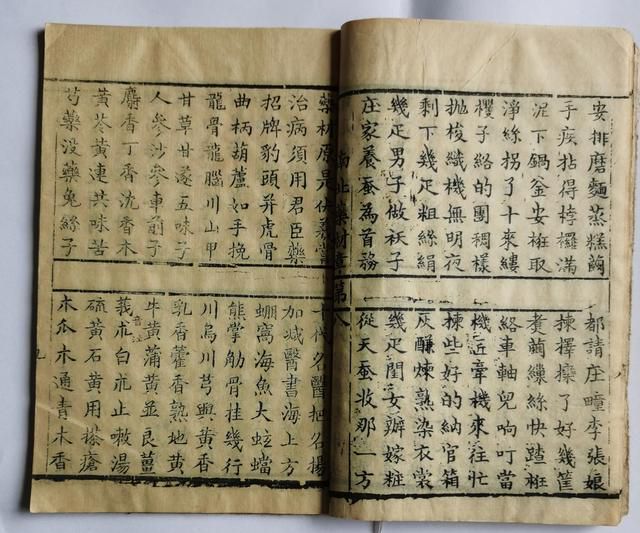 安排磨麵蒸糕 都請庄疃李張娘
手疾拈得桲欏滿 揀擇欒了好幾筐
泥下鍋釜安栣取 煑繭繅絲快躧栣
淨絲拐了十來縷 絡車軸兒响叮當
櫻子絡的團稠樣 機近牽機來往忙
抛梭織機無明夜 揀些好的納官箱
剩下幾疋粗絲絹 灰醶煉熟染衣裳
幾疋男子做袄子 幾疋閨女辦嫁粧
庄家養蚕為首務 從天蚕收那一方
南北藥材章第八
藥材原是伏羲嘗 十代名醫把名揚
治病須用君臣藥 加减醫書海上方
招牌豹頭并虎骨 蝴窩海魚大蛟蟷
曲柄葫蘆如手挽 熊掌觔骨挂幾行
龍骨龍腦川山甲 川烏川芎與黄香
甘草甘遂五味子 乳香藿香熟地黄
人參沙參車前子 牛黄蒲黄並良薑
麝香丁香沈香木 莪朮白朮止嗽湯
黄芩黄連共味苦 硫黄石黄用搽瘡
芍藥没藥兔絲子 木瓜木通青木香